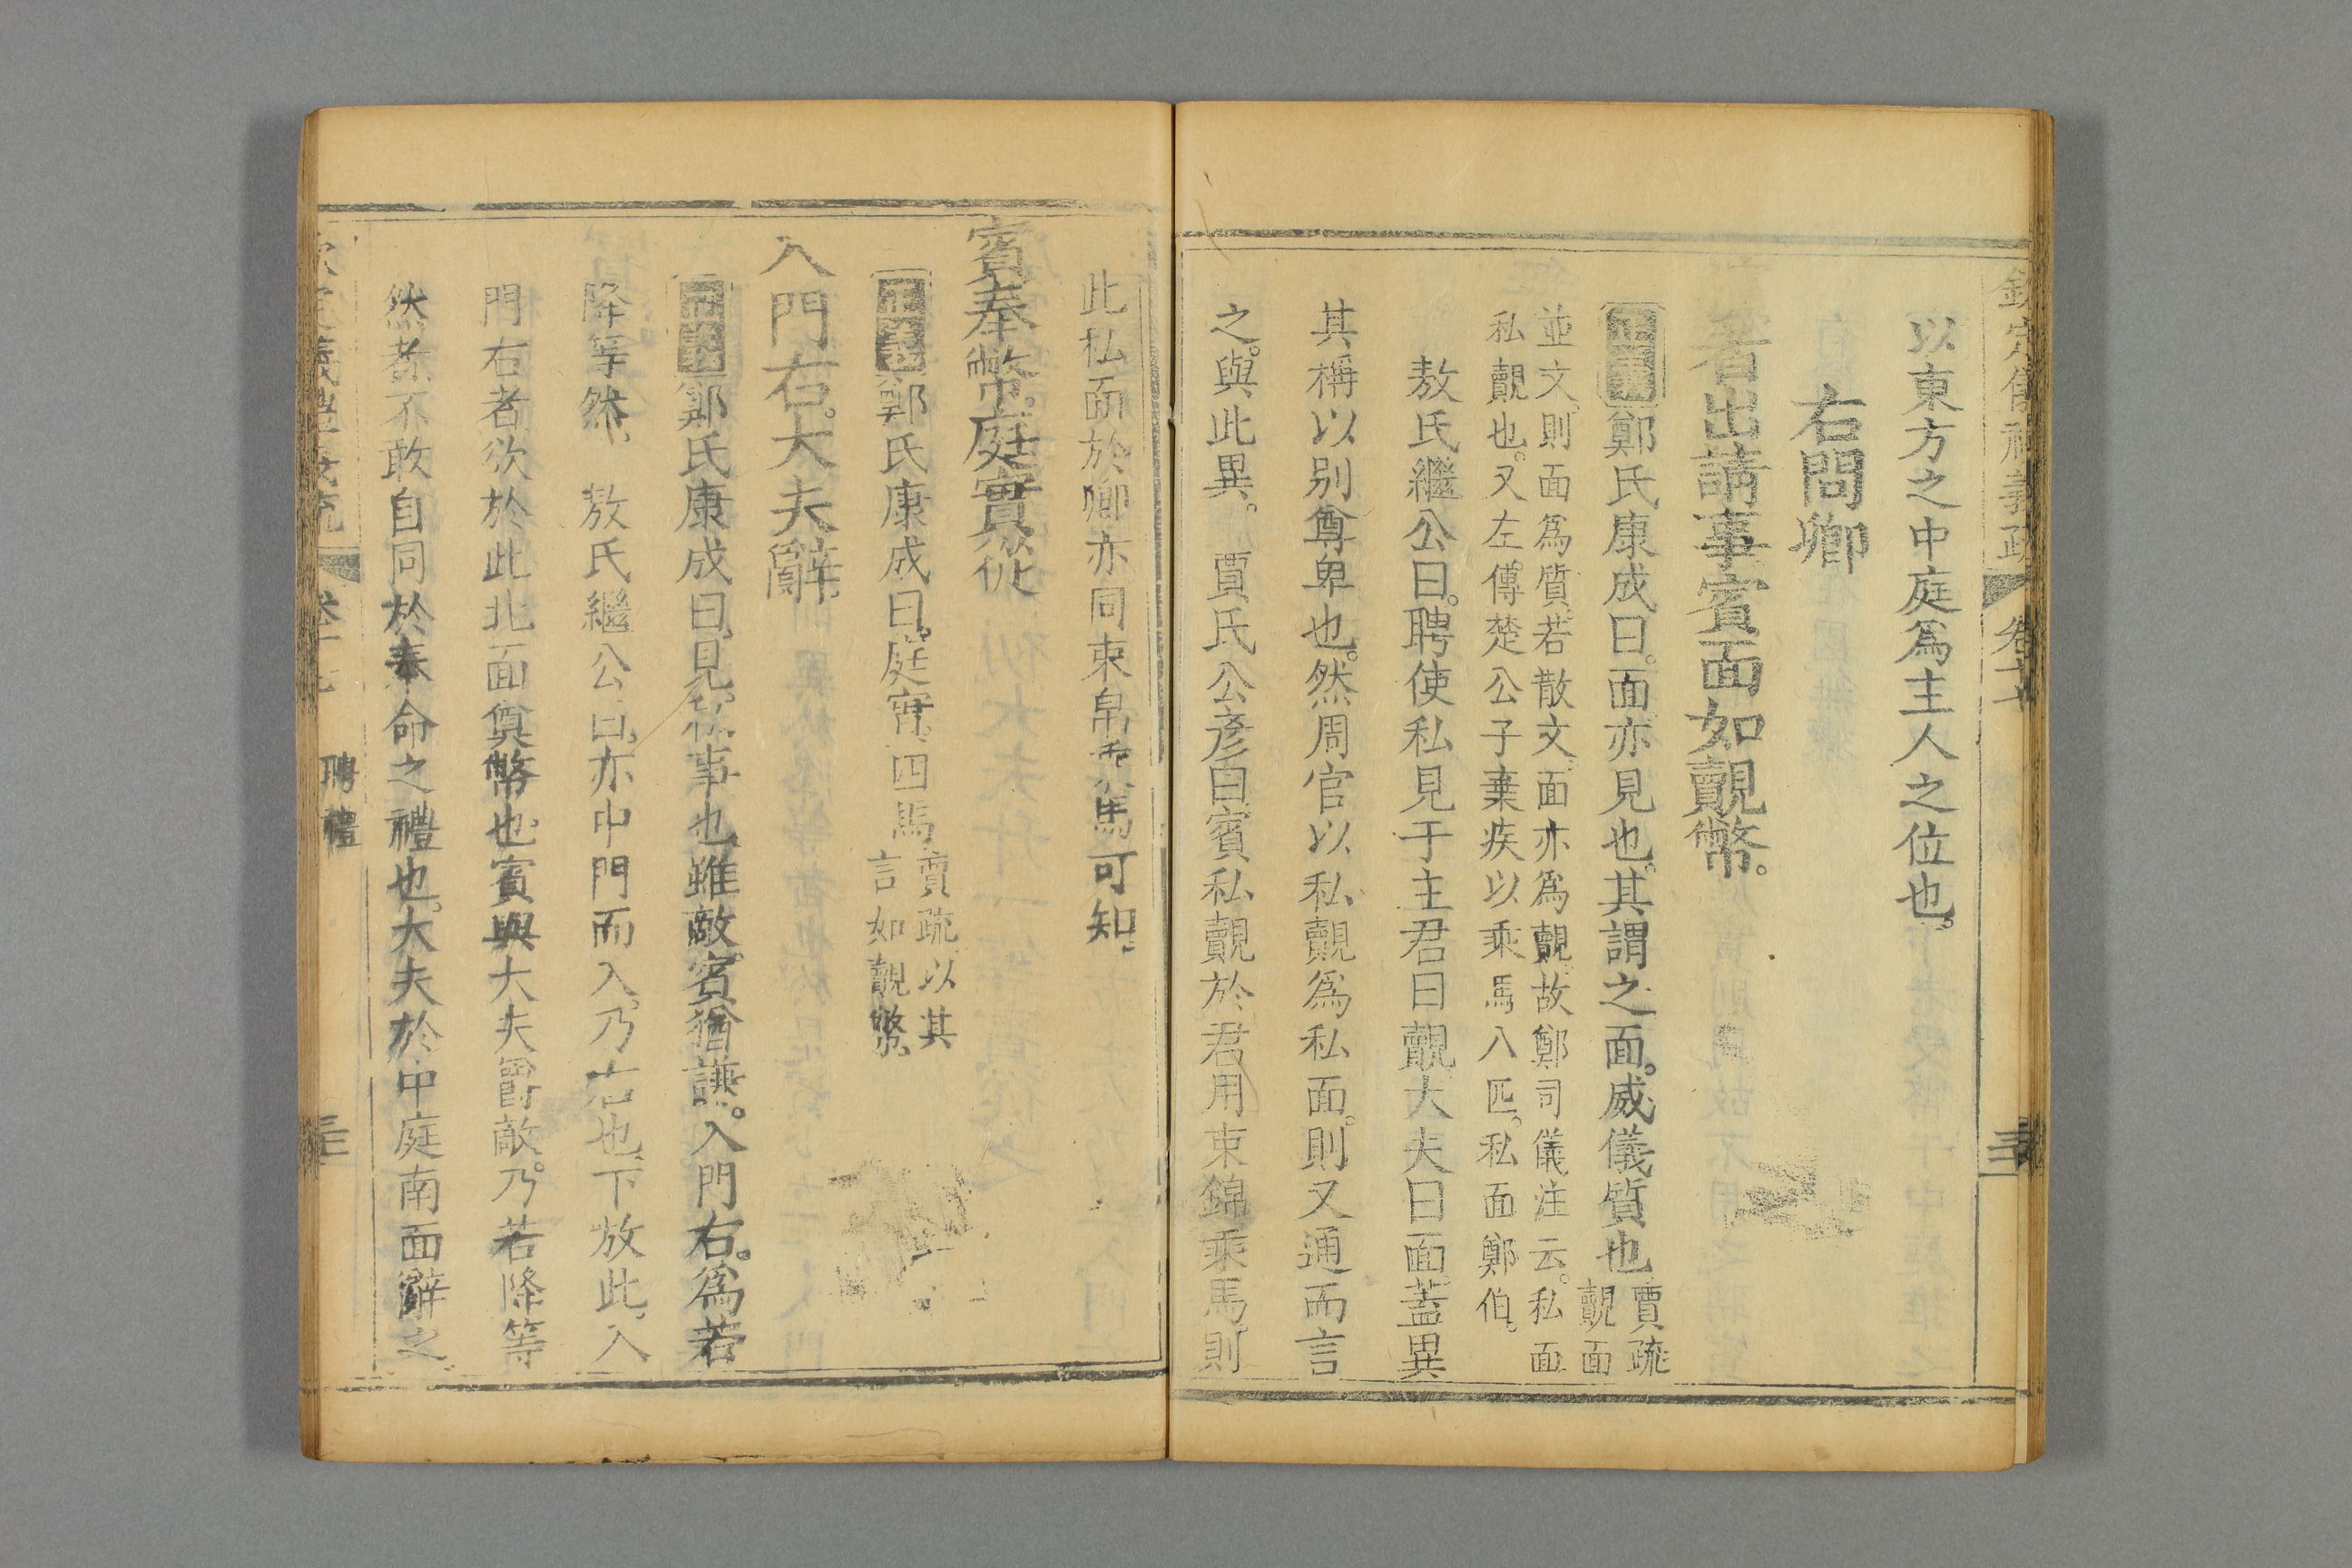 欽定儀禮義疏 卷十七
以東方之中庭爲主人之位也。
右問卿
擯者出請事賓面如覿幣。
正義鄭氏康成曰。面亦見也。其謂之面。威儀質也
賈疏
覿面
並文。則面爲質。若散文。面亦爲覿。故鄭司儀注云。私面
私覿也。又左。傳楚公子棄疾以乘馬八匹。私面鄭伯。
敖氏繼公曰。聘使私見于主君曰覿大夫曰面蓋異
其稱以别尊卑也。然周官以私覿爲私面。則又通而言
之。與此異。 賈氏公彦曰賓私覿於君用束錦乘馬。則
此私面於卿亦同束帛乘馬可知。
賓奉幣。庭實從
正義鄭氏康成曰。庭實四馬
賈疏。以其
言如覿幣。
入門右。大夫辭。
正義鄭氏康成曰。見。私事也。雖敵。賓猶謙。入門右。爲若
降等然。 敖氏繼公曰。亦中門而入。乃右也。下放此。入
門右者欲於此北面奠幣也。賓與大夫爵敵。乃若降等
然者不敢自同於奉命之禮也。大夫於中庭南面辭之。
欽定儀禮義疏 卷十七 聘禮